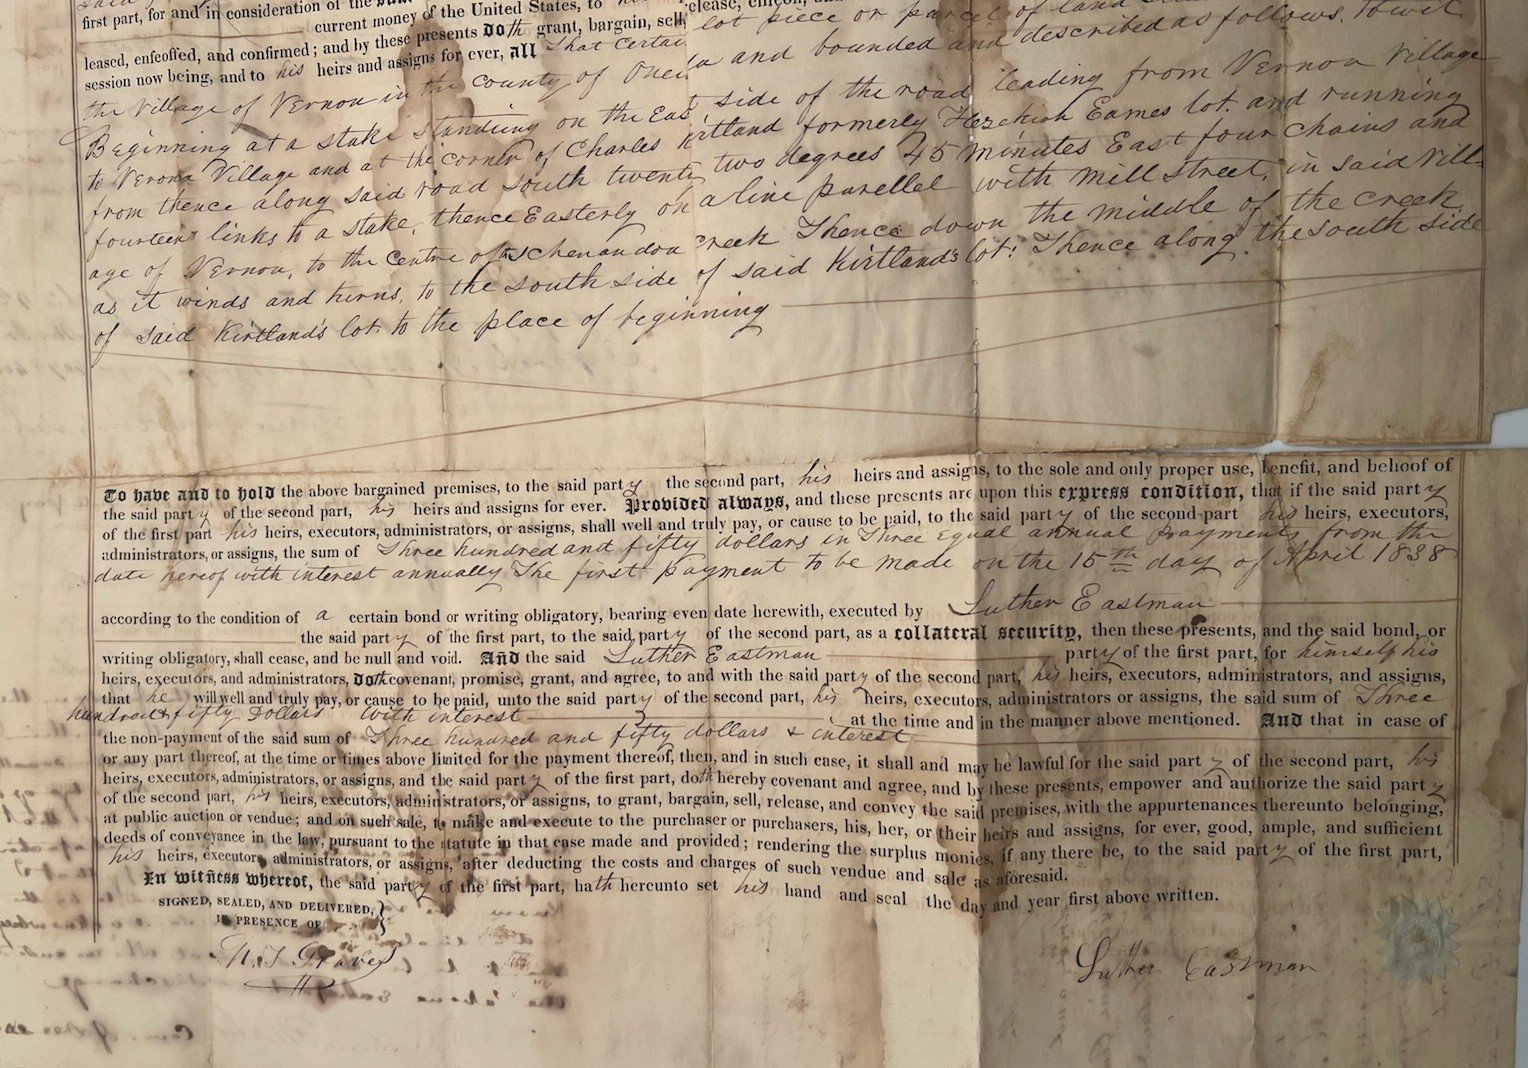 first part, for and in consideration of the sum
current money of the United States, to
leased, enfeoffed, and confirmed; and by these presents doth grant, bargain, sell, release,
session now being, and to his heirs and assigns for ever, all that certain lot piece or parcel of land
the Village of Vernon in the county of Oneida and bounded and described as follows. to wit.
Beginning at a stake standing on the East side of the road leading from Vernon Village
to Verona Village and at the corner of Charles Kirtland formerly Hezekiah Eames lot. and running
from thence along said road south twenty two degrees 45 minutes East four chains and
fourteen links to a stake, thence Easterly on a line parellel with mill street, in said Vill-
age of Vernon, to the centre of Schenandoa creek Thence down the middle of the creek
as it winds and turns, to the south side of said Kirtland's lot: Thence along the south side
of said Kirtland's lot to the place of beginning
To have and to hold the above bargained premises, to the said party the second part, his heirs and assigns, to the sole and only proper use, benefit, and behoof of
the said party of the second part, his heirs and assigns for ever. Provided always, and these presents are upon this express condition, that if the said party
of the first part his heirs, executors, administrators, or assigns, shall well and truly pay, or cause to be paid, to the said party of the second part his heirs, executors,
administrators, or assigns, the sum of Three hundred and fifty dollars in Three equal annual payments from the
date hereof with interest annually The first payment to be made on the 15th day of April 1838
according to the condition of a certain bond or writing obligatory, bearing even date herewith, executed by Luther Eastman
the said party of the first part, to the said party of the second part, as a collateral security, then these presents, and the said bond, or
writing obligatory, shall cease, and be null and void. And the said Luther Eastman party of the first part, for himself his
heirs, executors, and administrators, doth covenant, promise, grant, and agree, to and with the said party of the second part, his heirs, executors, administrators, and assigns,
that he will well and truly pay, or cause to be paid, unto the said party of the second part, his heirs, executors, administrators or assigns, the said sum of Three
hundred & fifty Dollars with interest at the time and in the manner above mentioned. And that in case of
the non-payment of the said sum of Three hundred and fifty dollars & interest
or any part thereof, at the time or times above limited for the payment thereof, then, and in such case, it shall and may be lawful for the said party of the second part, his
heirs, executors, administrators, or assigns, and the said party of the first part, doth hereby covenant and agree, and by these presents, empower and authorize the said party
of the second part, his heirs, executors, administrators, or assigns, to grant, bargain, sell, release, and convey the said premises, with the appurtenances thereunto belonging,
at public auction or vendue; and on such sale, to make and execute to the purchaser or purchasers, his, her, or their heirs and assigns, for ever, good, ample, and sufficient
deeds of conveyance in the law, pursuant to the statute in that case made and provided; rendering the surplus monies, if any there be, to the said party of the first part,
his heirs, executors administrators, or assigns, after deducting the costs and charges of such vendue and sale as aforesaid.
In witness whereof, the said party of the first part, hath hereunto set his hand and seal the day and year first above written.
SIGNED, SEALED, AND DELIVERED,
IN PRESENCE OF
N. J. Graves
Luther Eastman